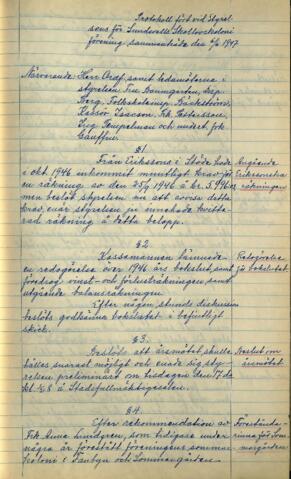 Protokoll fört vid styrel-
sens för Sundsvalls Skollovskoloni
förening sammanträde den
1947
Närvarande: Herr Ordf. samt ledamöterna i
styrelsen Fru Baumgarten, Insp.
Berg, Folkskoleinsp. Bäckström,
Kassör Isacson, Frk Pettersson,
Ing. Tempelman och undert. frk.
Gauffin.
§1.
Från Erikssons i Stöde hade
i okt. 1946 inkommit muntligt krav för
en räkning av den 25/9 1946 å kr. 5.996:
men beslöt styrelsen att avvisa detta
krav, enär styrelsen ej innehade kvitte-
rad räkning å detta belopp.
Angående
Erikssonska
räkningen
§2.
Kassamannen lämnade
en redogörelse över 1946 års bokslut samt
föredrog vinst- och förlusträkningen samt
utgående balansräkningen.
Efter någon stunds diskussion
beslöts godkänna bokslutet i befintligt
skick.
Redogörelse
för bokslutet
§3.
Beslöts att årsmötet skulle
hållas snarast möjligt och enade sig sty-
relsen preliminärt om tisdagen den 17 de
kl. å Stadsfullmäktigesalen.
Beslut om
årsmötet
§4.
Efter rekommendation av
Frk Anna Lundgren, som tidigare under
några år förestått föreningens sommar-
koloni i Fanbyn och Sommargården
Förestånda-
rinna för Som-
margården